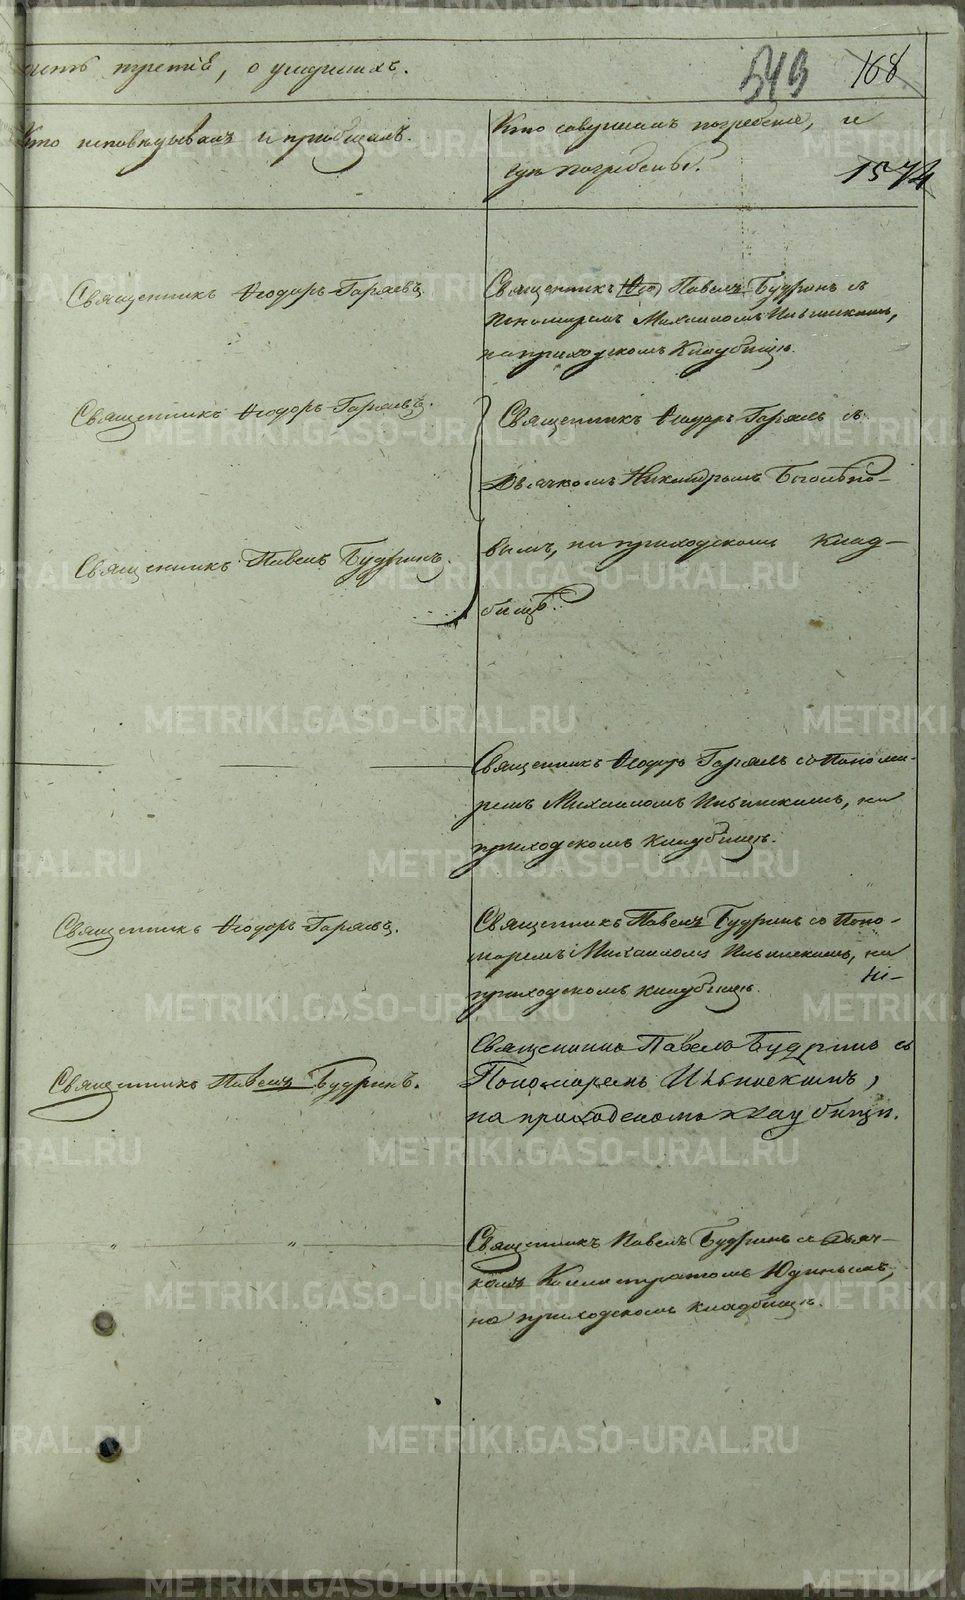 часть третія, о умершихъ.
343
168
Кто исповѣдывалъ и пріобщалъ.
Кто совершалъ погребеніе, и
гдѣ погребены.
1574
Священникъ Ѳеодоръ Горяевъ.
Священникъ Павелъ Будринъ съ
Пономаремъ Михаиломъ Ильинскимъ,
на приходскомъ кладбищѣ.
Священникъ Ѳеодоръ Горяевъ.
Священникъ Ѳеодоръ Горяевъ съ
Дьячкомъ Никандромъ
Священникъ Павелъ Будринъ.
вымъ, на приходскомъ клад-
бищѣ.
Священникъ Ѳеодоръ Горяевъ со Понома-
ремъ Михаиломъ Ильинскимъ, на
приходскомъ кладбищѣ.
Священникъ Ѳеодоръ Горяевъ.
Священникъ Павелъ Будринъ со Поно-
маремъ Михаиломъ Ильинскимъ, на
приходскомъ кладбищѣ.
Священникъ Павелъ Будринъ.
Священникъ Павелъ Будринъ съ
Пономаремъ Ильинскимъ,
на приходскомъ кладбищѣ.
Священникъ Павелъ Будринъ съ Дьяч-
комъ Каллистратомъ Юдинымъ,
на приходскомъ кладбищѣ.
METRIKI.GASO-URAL.RU